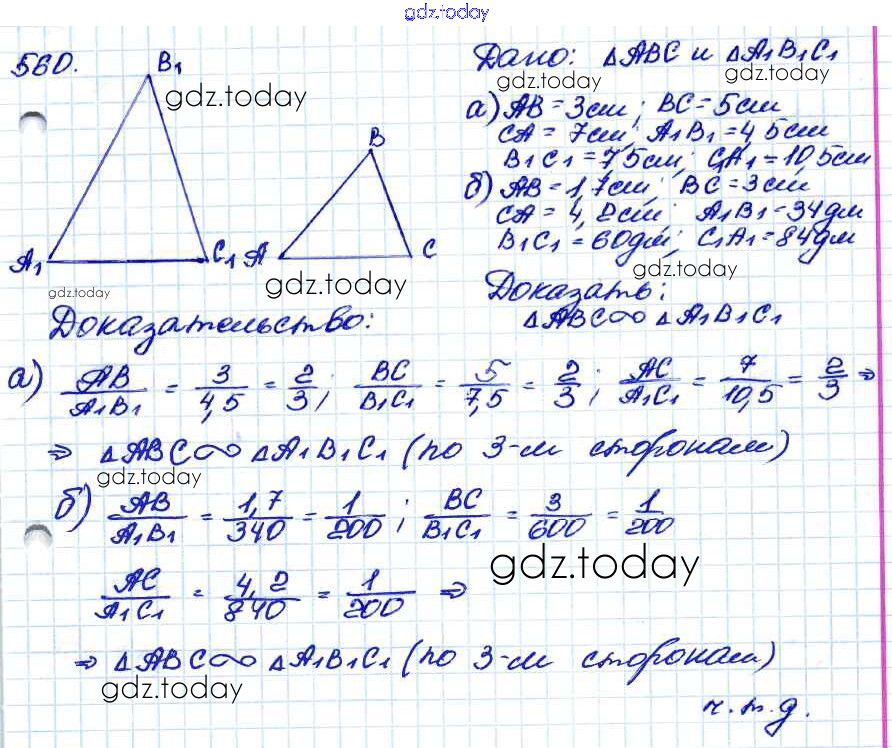 gdz.today
560.
B₁
Дано: △ABC и △A₁B₁C₁
gdz.today
gdz.today
gdz.today
а) AB = 3см; BC = 5см
CA = 7см; A₁B₁ = 4,5см
B₁C₁ = 7,5см; C₁A₁ = 10,5см
B
б) AB = 1,7см; BC = 3см;
CA = 4,2см; A₁B₁ = 34дм
B₁C₁ = 60дм; C₁A₁ = 84дм
A₁ C₁ A C
gdz.today
gdz.today
gdz.today
Доказать:
△ABC ∞ △A₁B₁C₁
Доказательство:
а) AB/A₁B₁ = 3/4,5 = 2/3; BC/B₁C₁ = 5/7,5 = 2/3; AC/A₁C₁ = 7/10,5 = 2/3 ⇒
⇒ △ABC ∞ △A₁B₁C₁ (по 3-м сторонам)
gdz.today
б) AB/A₁B₁ = 1,7/340 = 1/200; BC/B₁C₁ = 3/600 = 1/200
gdz.today
AC/A₁C₁ = 4,2/840 = 1/200 ⇒
⇒ △ABC ∞ △A₁B₁C₁ (по 3-м сторонам)
gdz.today
ч.т.д.